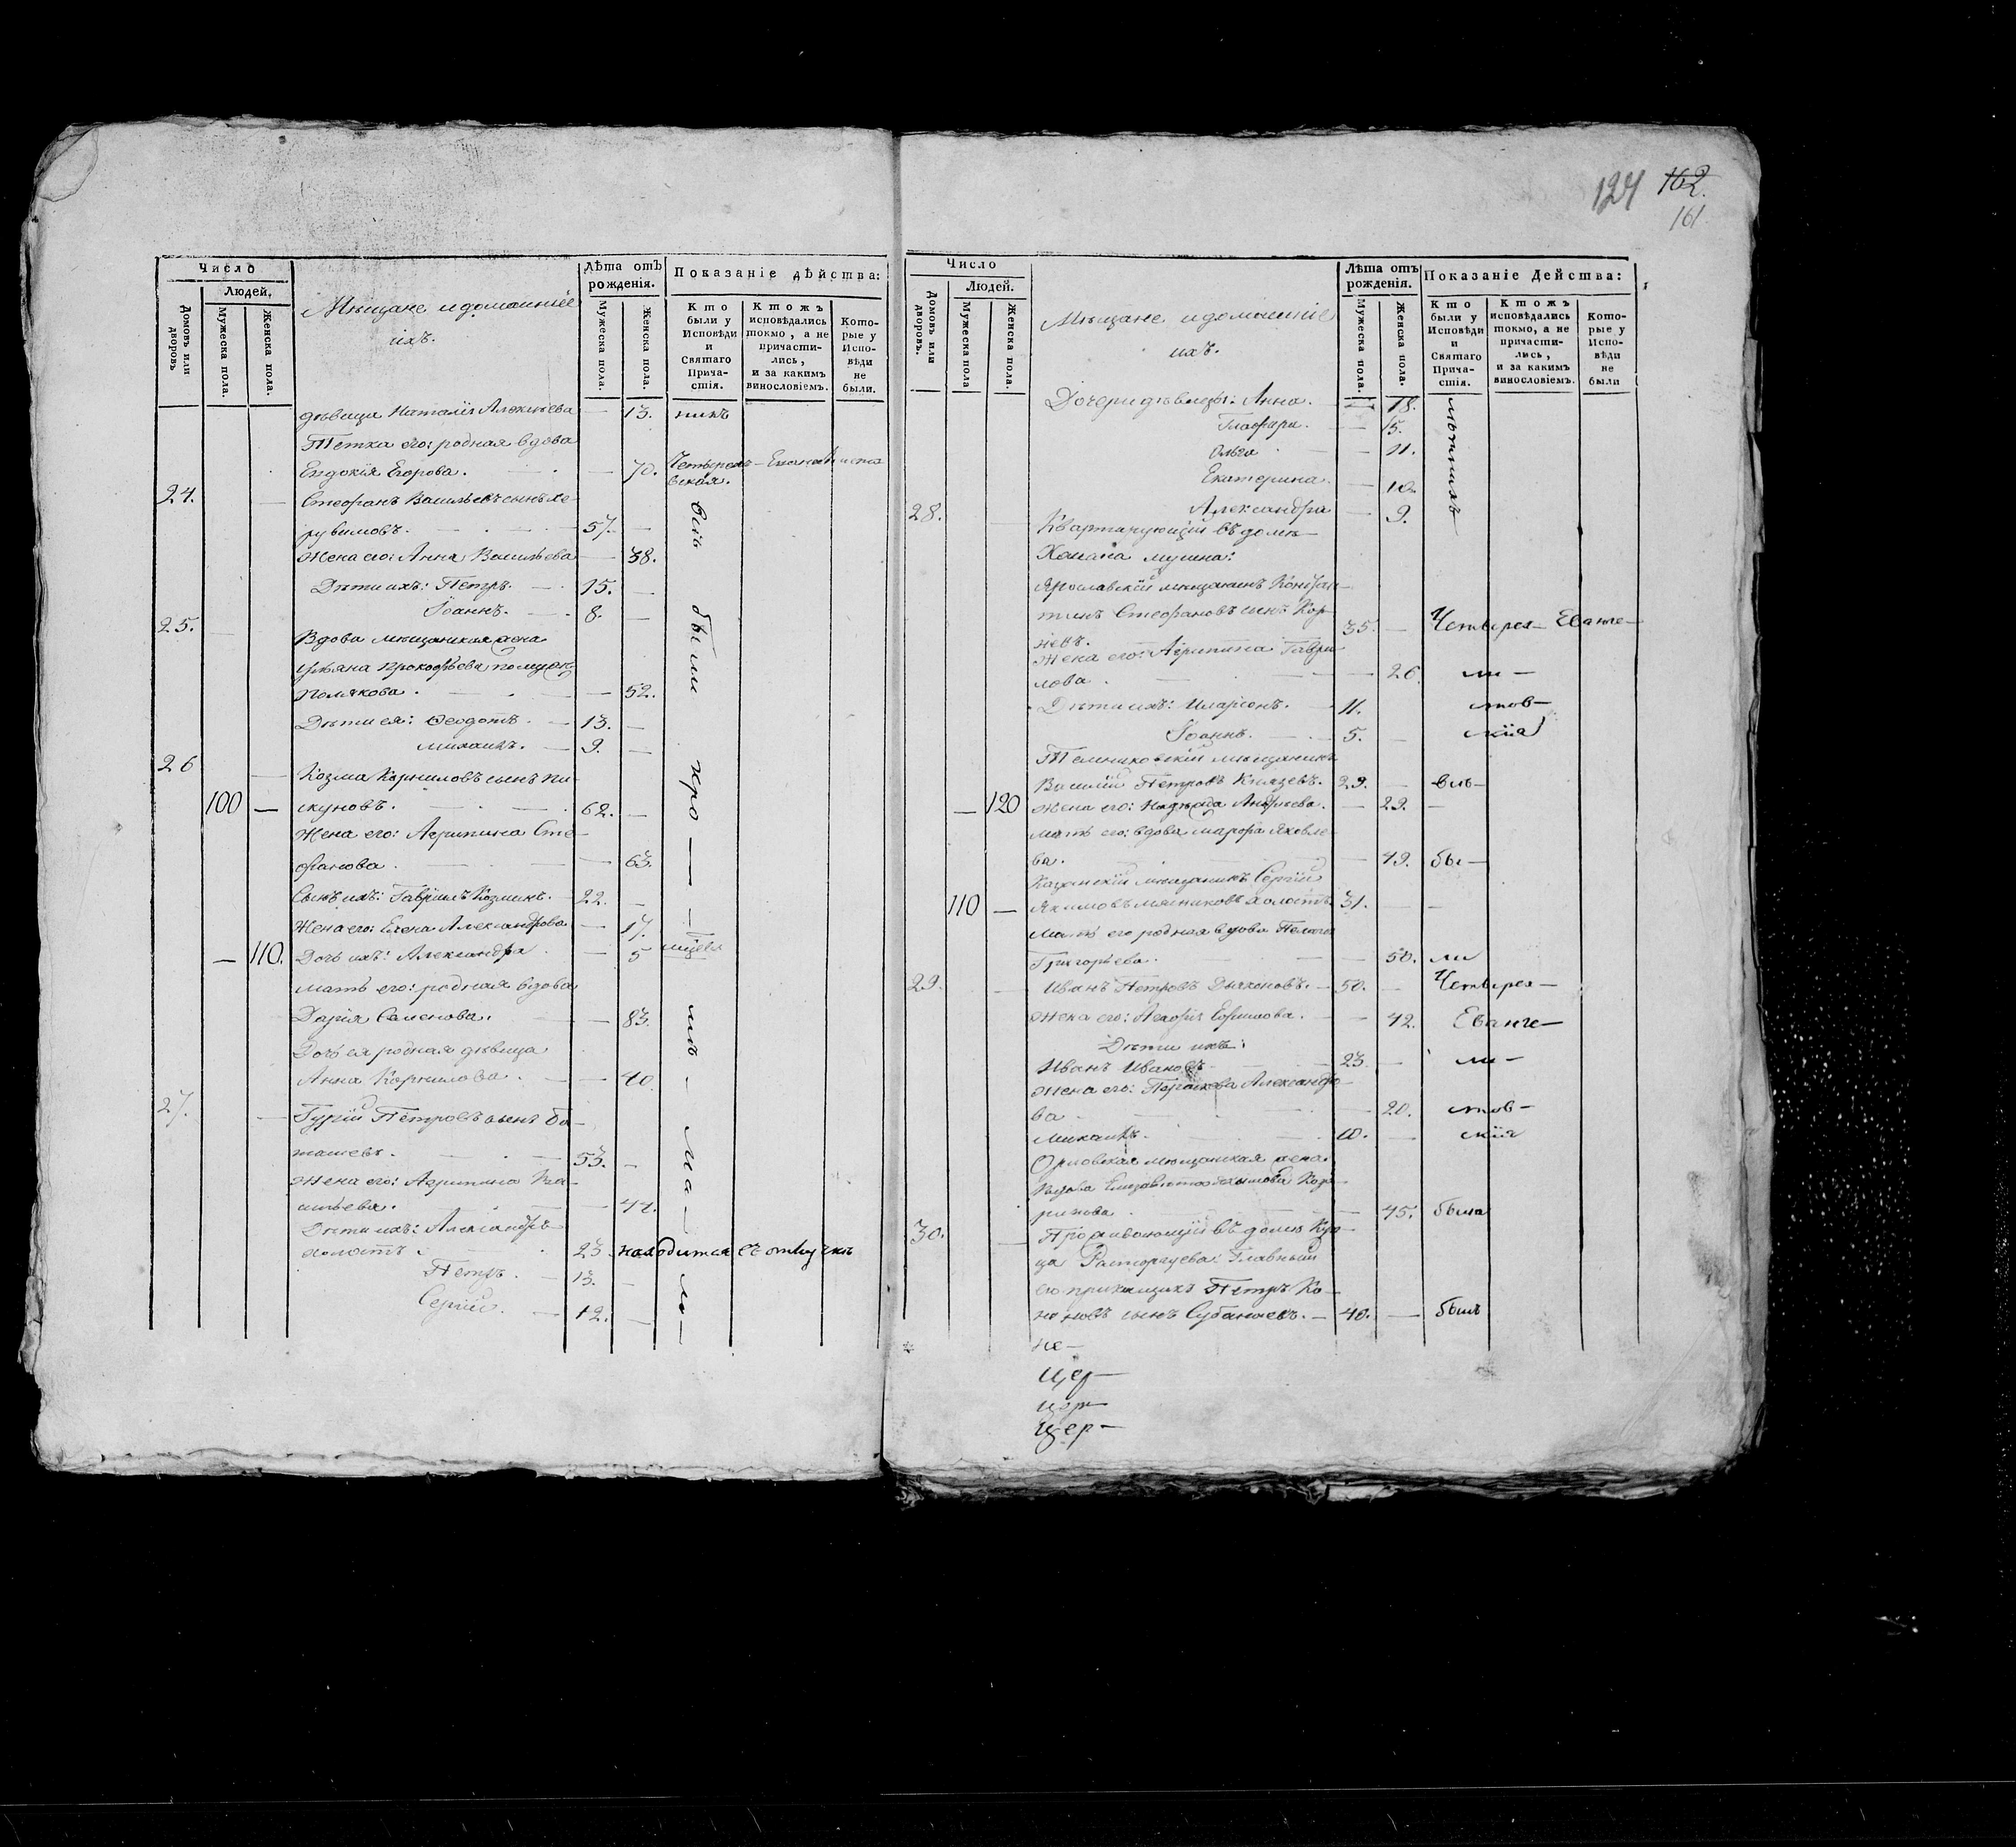 124 162.
161
Число
Людей.
Домовъ или дворовъ
Мужеска пола.
Женска пола.
Мѣщане и домашніе
ихъ.
Лѣта отъ
рожденія.
Мужеска пола.
Женска пола.
Показаніе дѣйства:
Кто
были у
Исповѣди
и
Святаго
Прича-
стія.
Ктожъ
исповѣдались
токмо, а не
причасти-
лись,
и за какимъ
винословіемъ.
Кото-
рые у
Испо-
вѣди
не
были.
дѣвица Наталія Алексѣева — 13.
Тетка его: родная вдова
Евдокія Егорова. — 70.
24. — Стефанъ Васильевъ сынъ Хе-
рувимовъ. 57. —
Жена его: Анна Васильева — 38.
Дѣти их: Петръ. 15. —
Іоаннъ. 8. —
25. — Вдова мѣщанская жена
Ульяна Прокофьева по мужѣ
Полякова. — 52.
Дѣти ея: Феодотъ. 13. —
Михаилъ. 9. —
26 — Козма Корниловъ сынъ Пи-
100 — скуновъ. 62. —
Жена его: Агрипина Сте-
фанова. — 63.
Сынъ ихъ: Гавріилъ Козминъ. 22. —
Жена его: Елена Александрова — 17.
— 110. Дочь ихъ: Александра — 5
мать его: родная вдова
Дарія Семенова. — 83.
Дочь ея родная дѣвица
Анна Корнилова. — 40.
27. — Гурій Петровъ сынъ Бо-
ташевъ. 53. —
Жена его: Агрипина Ва-
сильева. — 47.
Дѣти ихъ: Александръ
холостъ. 23. находится въ отлучкѣ
Петръ. 13. —
Сергій. 12. —
всѣ были
Число
Людей.
Домовъ или дворовъ.
Мужеска пола
Женска пола.
Мѣщане и домашніе
ихъ.
Лѣта отъ
рожденія.
Мужеска пола.
Женска пола.
Показаніе Действа:
Кто
были у
Исповѣди
и
Святаго
Прича-
стія.
Ктожъ
исповѣдались
токмо, а не
причасти-
лись,
и за какимъ
винословіемъ.
Кото-
рые у
Испо-
вѣди
не
были
Дочери дѣвицы: Анна. — 18.
Глафира. — 15.
Ольга — 11.
Екатерина. — 10.
Александра — 9.
28. — Квартирующій въ домѣ
Ярославскій мѣщанинъ Констан-
тинъ Стефановъ сынъ Кор-
невъ. 35. — Четверо- Еванге-
Жена его: Агрипина Гаври-
лова. — 26. ли-
Дѣти ихъ: Иларіонъ. 11. стов-
Іоаннъ. 5. — скія
Темниковскій мѣщанинъ
Василій Петровъ Князевъ. 29. — всѣ-
— 120 Жена его: Надежда Андреева. — 29. —
мать его: вдова Марфа Яковле-
ва. — 49. бы-
Казанскій мѣщанинъ Сергій
110 — Якимовъ Мясниковъ холостъ 31. —
мать его родная вдова Пелагея
Григорьева. — 50. ли
29. — Иванъ Петровъ Дьяконовъ. 50. — Четверо-
Жена его: Ефимова. — 42. Еванге-
Дѣти ихъ:
Иванъ Ивановъ 23. — ли-
Жена его: Парасковья Александро-
ва — 20. стов-
Михаилъ. 10. — скія
Орловская мѣщанская жена
вдова Елизавета
— 45. была
30. — Проживающій въ домѣ Куп-
ца Расторгуева: Главный
его прикащикъ Петръ Ко-
ноновъ сынъ 40. — былъ
не-
цер-
цер-
цер-